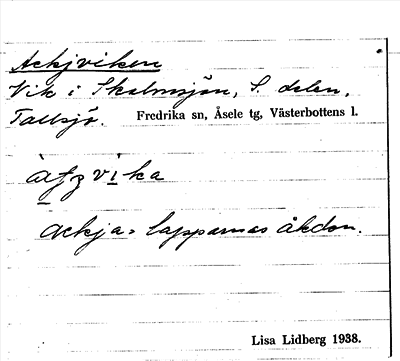 Ackjviken
Vik i Skalmsjön, S. delen,
Tallsjö. Fredrika sn, Åsele tg, Västerbottens l.
ackja = lapparnas åkdon.
Lisa Lidberg 1938.